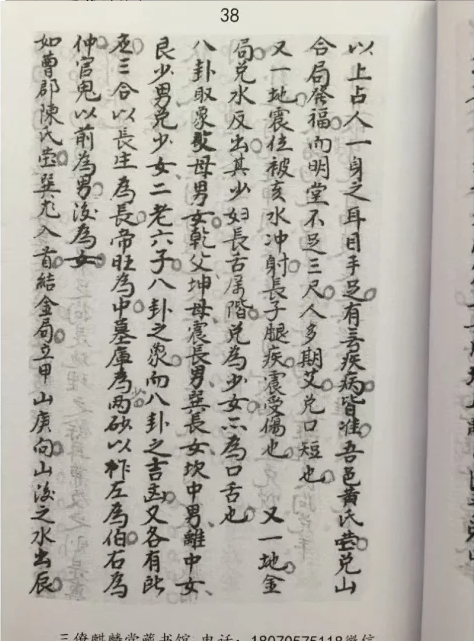 38
以上占人一身之耳目手足有無疾病皆准吾邑黄氏塋兑山
合局發福而明堂不足三尺人多期艾兑口短也
又一地震位被亥水冲射長子腿疾震受傷也 又一地金
局兑水反出其少婦長舌厲階兑為少女二為口舌也
八卦取象父母男女乾父坤母震長男巽長女坎中男離中女
艮少男兑少女二老六子八卦之象而八卦之吉凶又各有所
在三合以長生為長帝旺為中墓庫為少而砂以祚左為伯右為
仲官鬼以前為男後為女
如曹郡陳氏塋巽龙入首結金局立甲山庚向山後之水出辰
三僚麒麟堂藏书馆 电话：18070575118微信